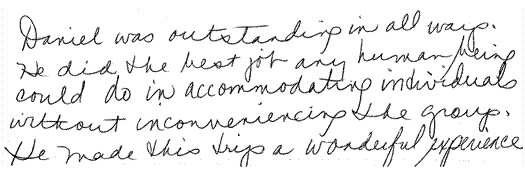 Daniel was outstanding in all ways.
He did the best job any human being
could do in accommodating individuals
without inconveniencing the group.
He made this trip a wonderful experience